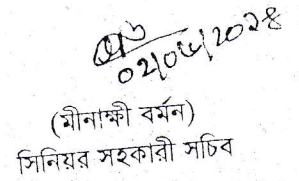 ০২/০৬/২০২৪
(মীনাক্ষী বর্মন)
সিনিয়র সহকারী সচিব